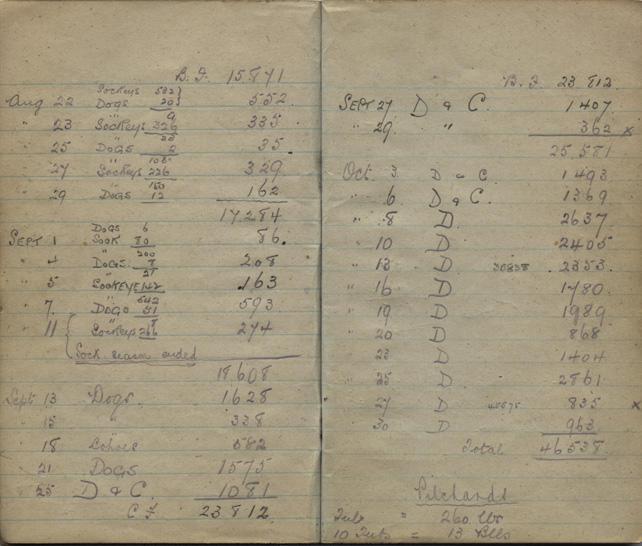 B.F. 15871
Sockeys 532
Aug 22 Dogs 20 552
" 9
" 23 Sockeys 326 335
" 33
" 25 Dogs 2 35
" 103
" 27 Sockeys 226 329
" 150
" 29 Dogs 12 162
17284
Dogs 6
SEPT 1 Sock 80 86
" 200
" 4 DOGS 8 208
" 21
" 5 SOCKEYE 142 163
" 542
" 7 DOGS 51 593
" 8
" 11 Sockeys 266 274
Sock season ended
18608
Sept 13 Dogs 1628
" 15 " 338
" 18 Cohoes 582
" 21 DOGS 1575
" 25 D & C. 1081
C F 23812
B.F. 23812
SEPT 27 D & C. 1407
" 29 " 362 x
25581
Oct. 3 D & C 1493
" 6 D & C. 1369
" 8 D 2637
" 10 D 2405
" 13 D 35838 2353
" 16 D 1780
" 19 D 1989
" 20 D 868
" 23 D 1404
" 25 D 2861
" 27 D 45575 835 x
" 30 D 963
Total 46538
Pilchards
Tub = 260 lbs
10 Tubs = 13 Blls